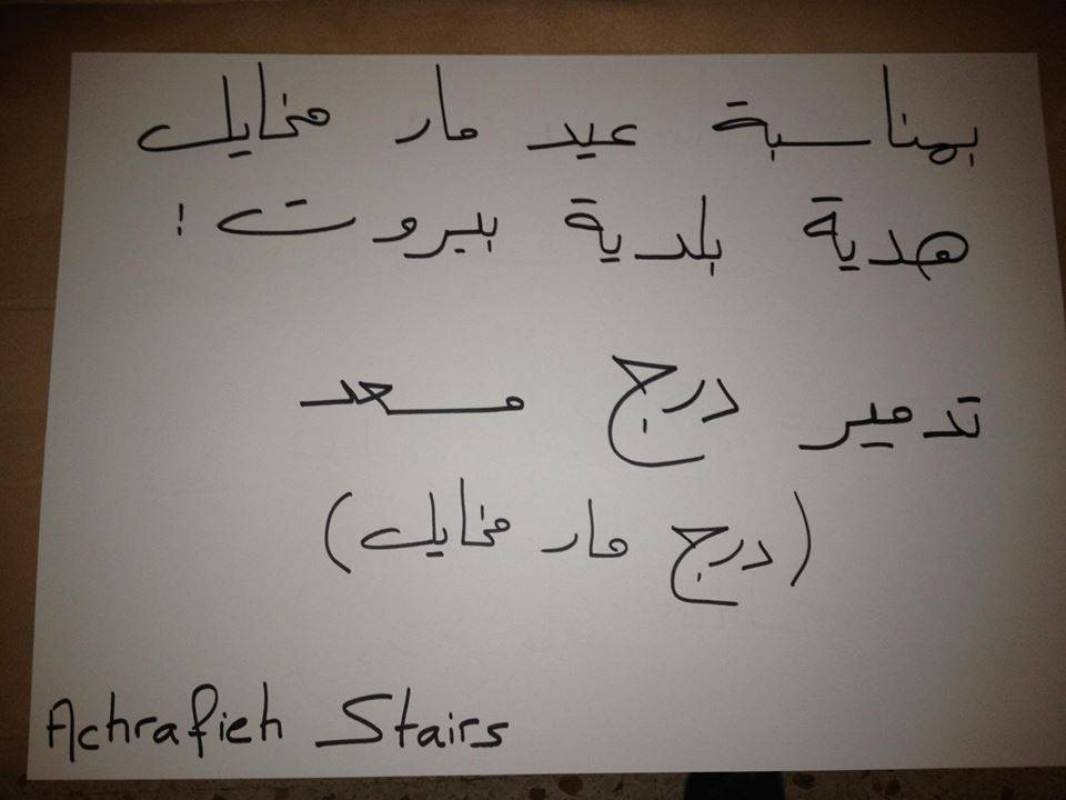 بمناسبة عيد مار مخايل
هدية بلدية بيروت :
تدمير درج مسعد
(درج مار مخايل)
Achrafieh Stairs